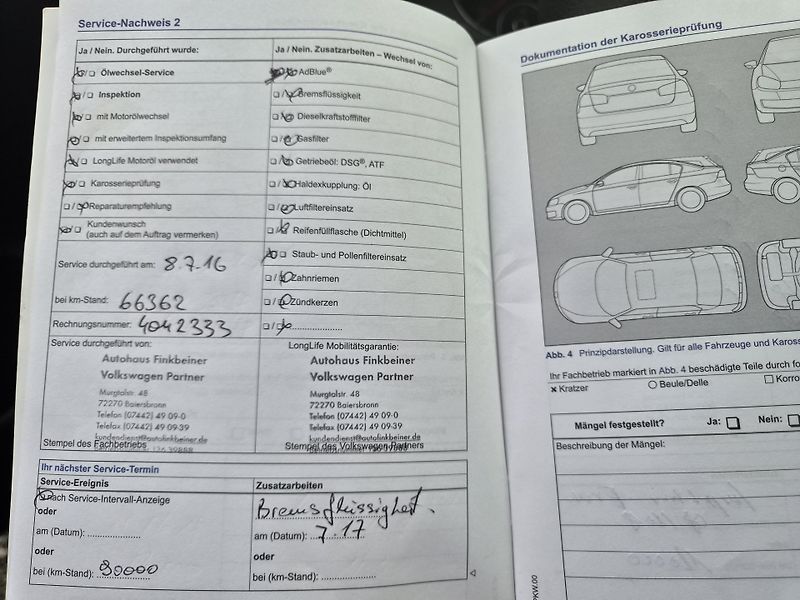 Service-Nachweis 2
Ja / Nein. Durchgeführt wurde:
Ölwechsel-Service
Inspektion
mit Motorölwechsel
mit erweitertem Inspektionsumfang
LongLife Motoröl verwendet
Karosserieprüfung
Reparaturempfehlung
Kundenwunsch
(auch auf dem Auftrag vermerken)
Service durchgeführt am: 8.7.16
bei km-Stand: 66362
Rechnungsnummer: 4042333
Ja / Nein. Zusatzarbeiten – Wechsel von:
AdBlue®
Bremsflüssigkeit
Dieselkraftstofffilter
Gasfilter
Getriebeöl: DSG®, ATF
Haldexkupplung: Öl
Luftfiltereinsatz
Reifenfüllflasche (Dichtmittel)
Staub- und Pollenfiltereinsatz
Zahnriemen
Zündkerzen
Service durchgeführt von:
Autohaus Finkbeiner
Volkswagen Partner
Murgtalstr. 48
72270 Baiersbronn
Telefon (07442) 49 09-0
Telefax (07442) 49 09-39
kundendienst@autofinkbeiner.de
Stempel des Fachbetriebs
LongLife Mobilitätsgarantie:
Autohaus Finkbeiner
Volkswagen Partner
Murgtalstr. 48
72270 Baiersbronn
Telefon (07442) 49 09-0
Telefax (07442) 49 09-39
kundendienst@autofinkbeiner.de
Stempel des Volkswagen Partners
Ihr nächster Service-Termin
Service-Ereignis
nach Service-Intervall-Anzeige
oder
am (Datum):
oder
bei (km-Stand): 90000
Zusatzarbeiten
Bremsflüssigkeit.
am (Datum): 7.17
oder
bei (km-Stand):
Dokumentation der Karosserieprüfung
Abb. 4 Prinzipdarstellung. Gilt für alle Fahrzeuge und Kaross
Ihr Fachbetrieb markiert in Abb. 4 beschädigte Teile durch fo
Kratzer
Beule/Delle
Korro
Mängel festgestellt? Ja: Nein:
Beschreibung der Mängel:
PKW.00